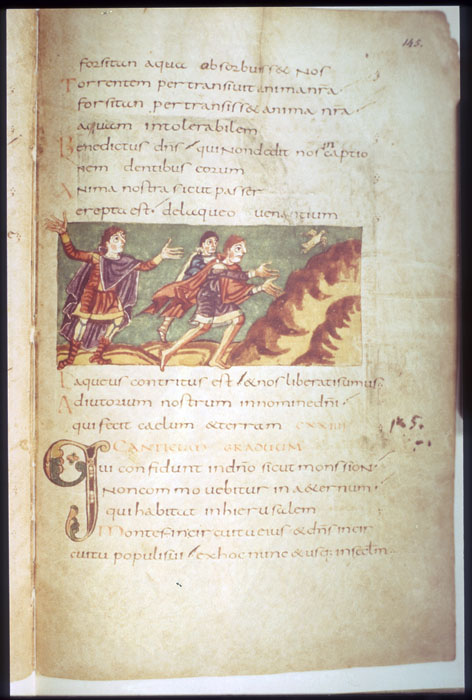 145.
forsitan aqua absorbuisset nos
Torrentem pertransivit anima nra
forsitan pertransisset anima nra
aquam intolerabilem
Benedictus dns qui non dedit nos in captio
nem dentibus eorum
Anima nostra sicut passer
erepta est de laqueo venantium
Laqueus contritus est & nos liberati sumus
Adiutorium nostrum in nomine dni
qui fecit caelum & terram CXXIIII
CANTICUM GRADUUM
Qui confidunt in dno sicut mons sion
Non commovebitur in aeternum
qui habitat in hierusalem
Montes in circuitu eius & dns in cir
cuitu populi sui ex hoc nunc & usq; in seclm